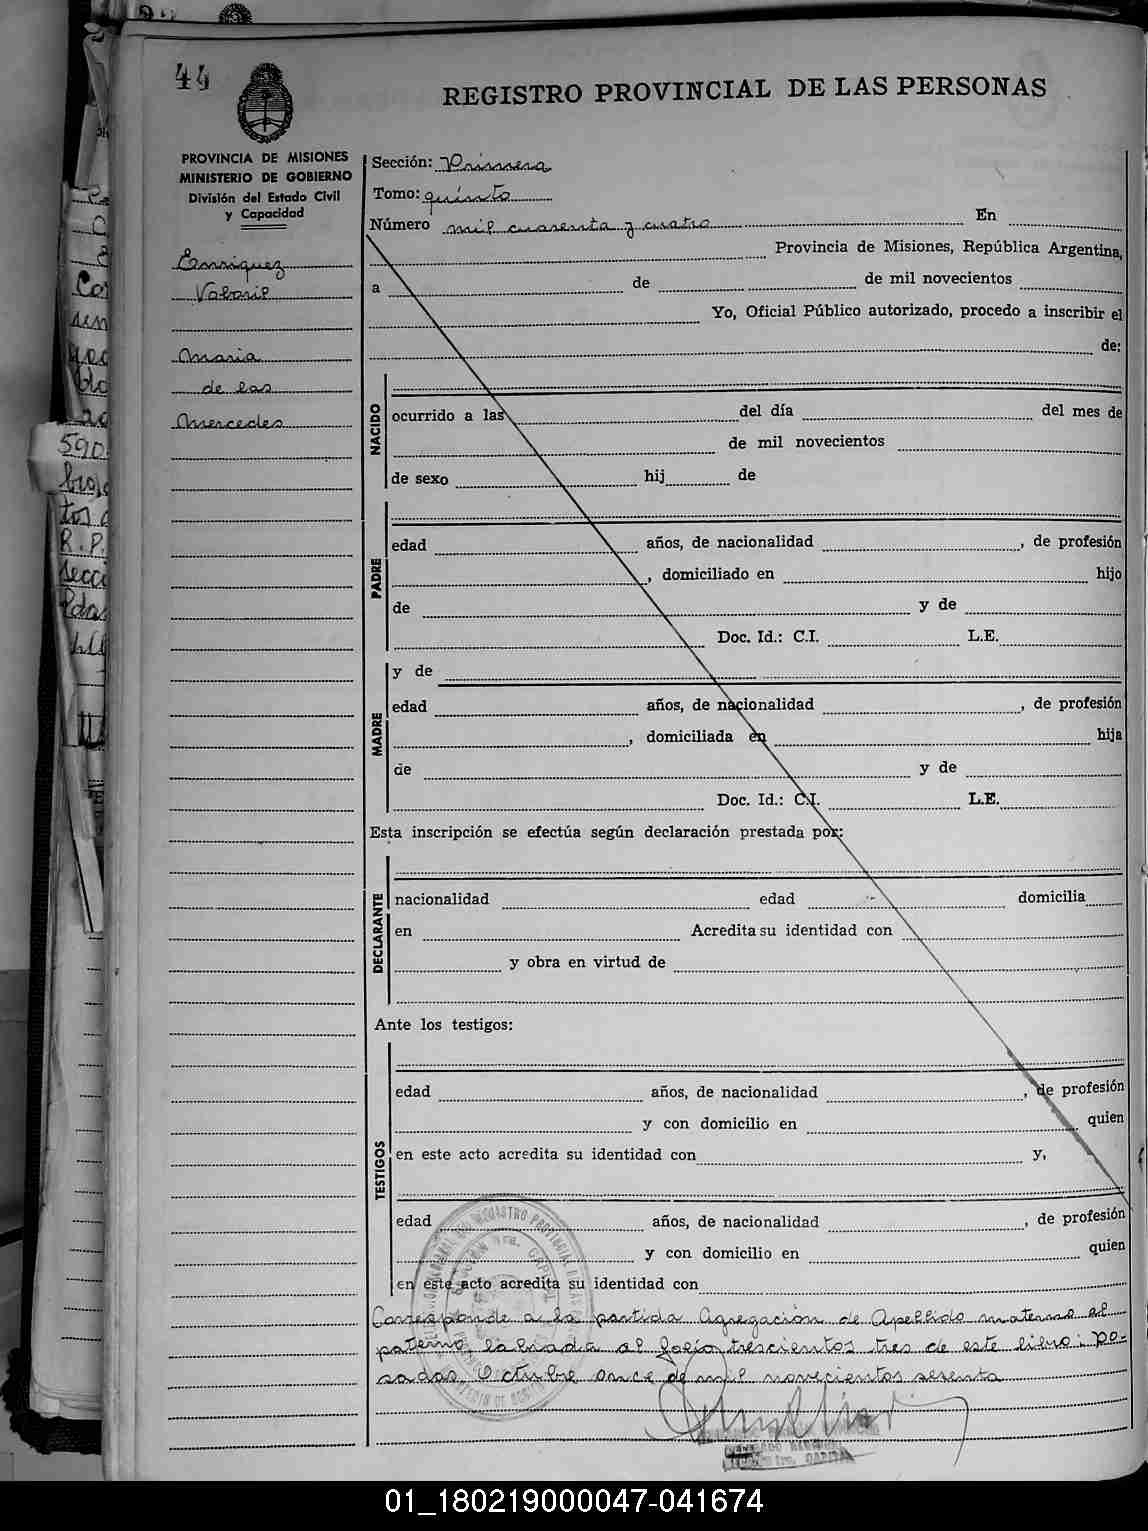 44
REGISTRO PROVINCIAL DE LAS PERSONAS
PROVINCIA DE MISIONES
MINISTERIO DE GOBIERNO
División del Estado Civil
y Capacidad
Enriquez
Maria
de las
Mercedes
Sección: Primera
Tomo: quinto
Número mil cuarenta y cuatro En
Provincia de Misiones, República Argentina,
a de de mil novecientos
Yo, Oficial Público autorizado, procedo a inscribir el
de:
NACIDO
ocurrido a las del día del mes de
de mil novecientos
de sexo hij de
PADRE
edad años, de nacionalidad , de profesión
, domiciliado en hijo
de y de
Doc. Id.: C.I. L.E.
MADRE
y de
edad años, de nacionalidad , de profesión
, domiciliada en hija
de y de
Doc. Id.: C.I. L.E.
Esta inscripción se efectúa según declaración prestada por:
DECLARANTE
nacionalidad edad domicilia
en Acredita su identidad con
y obra en virtud de
Ante los testigos:
TESTIGOS
edad años, de nacionalidad , de profesión
y con domicilio en quien
en este acto acredita su identidad con y,
edad años, de nacionalidad , de profesión
y con domicilio en quien
en este acto acredita su identidad con
Corresponde a la partida Agregación de Apellido materno al
paterno, labrada al folio trescientos tres de este libro: Po-
sadas, Octubre once de mil novecientos sesenta
590
R.P.
01_180219000047-041674